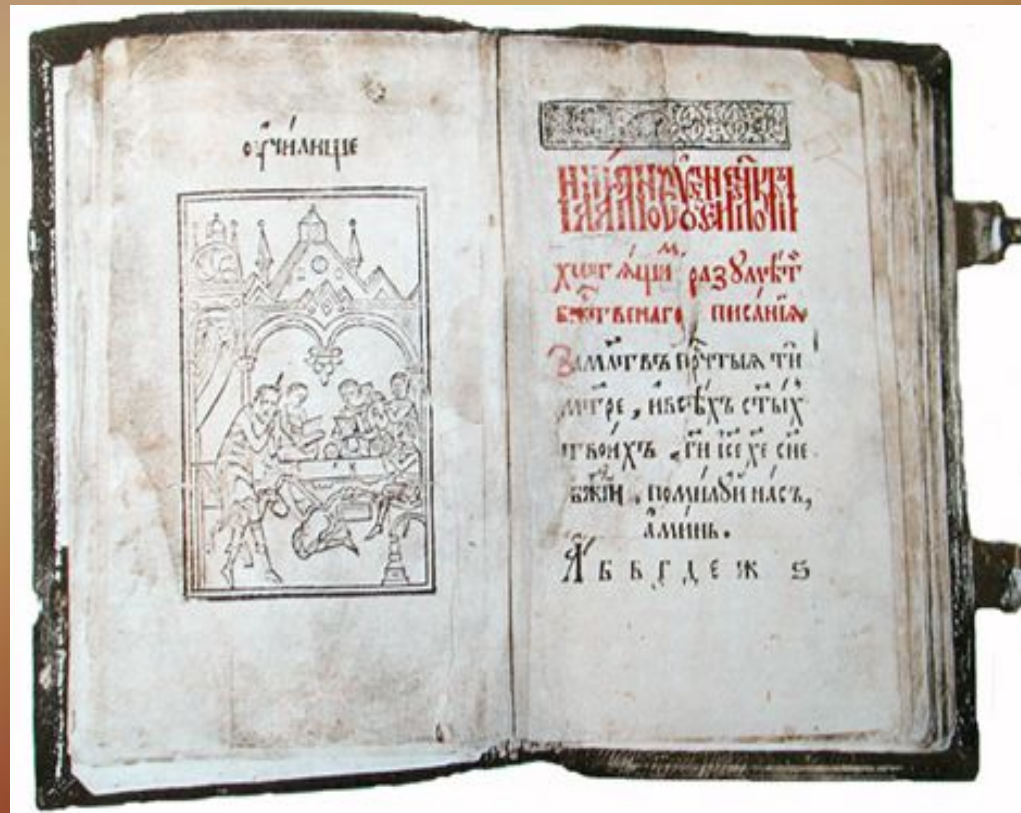 оу҆чи́лище
хотѧ́щиⷨ разꙋмѣ́тⷪ
бжⷭ҇твенаго писа́нїѧ
За мл҃твъ прⷱ҇тыѧ тѝ
мт҃ре, и҆ всѣ́хъ ст҃ы́хъ
твои́хъ, гⷭ҇и і҆с҃е хⷭ҇е сн҃е
бж҃їи, поми́лꙋй на́съ,
а҆ми́нь.
А Б В Г Д Е Ж Ѕ